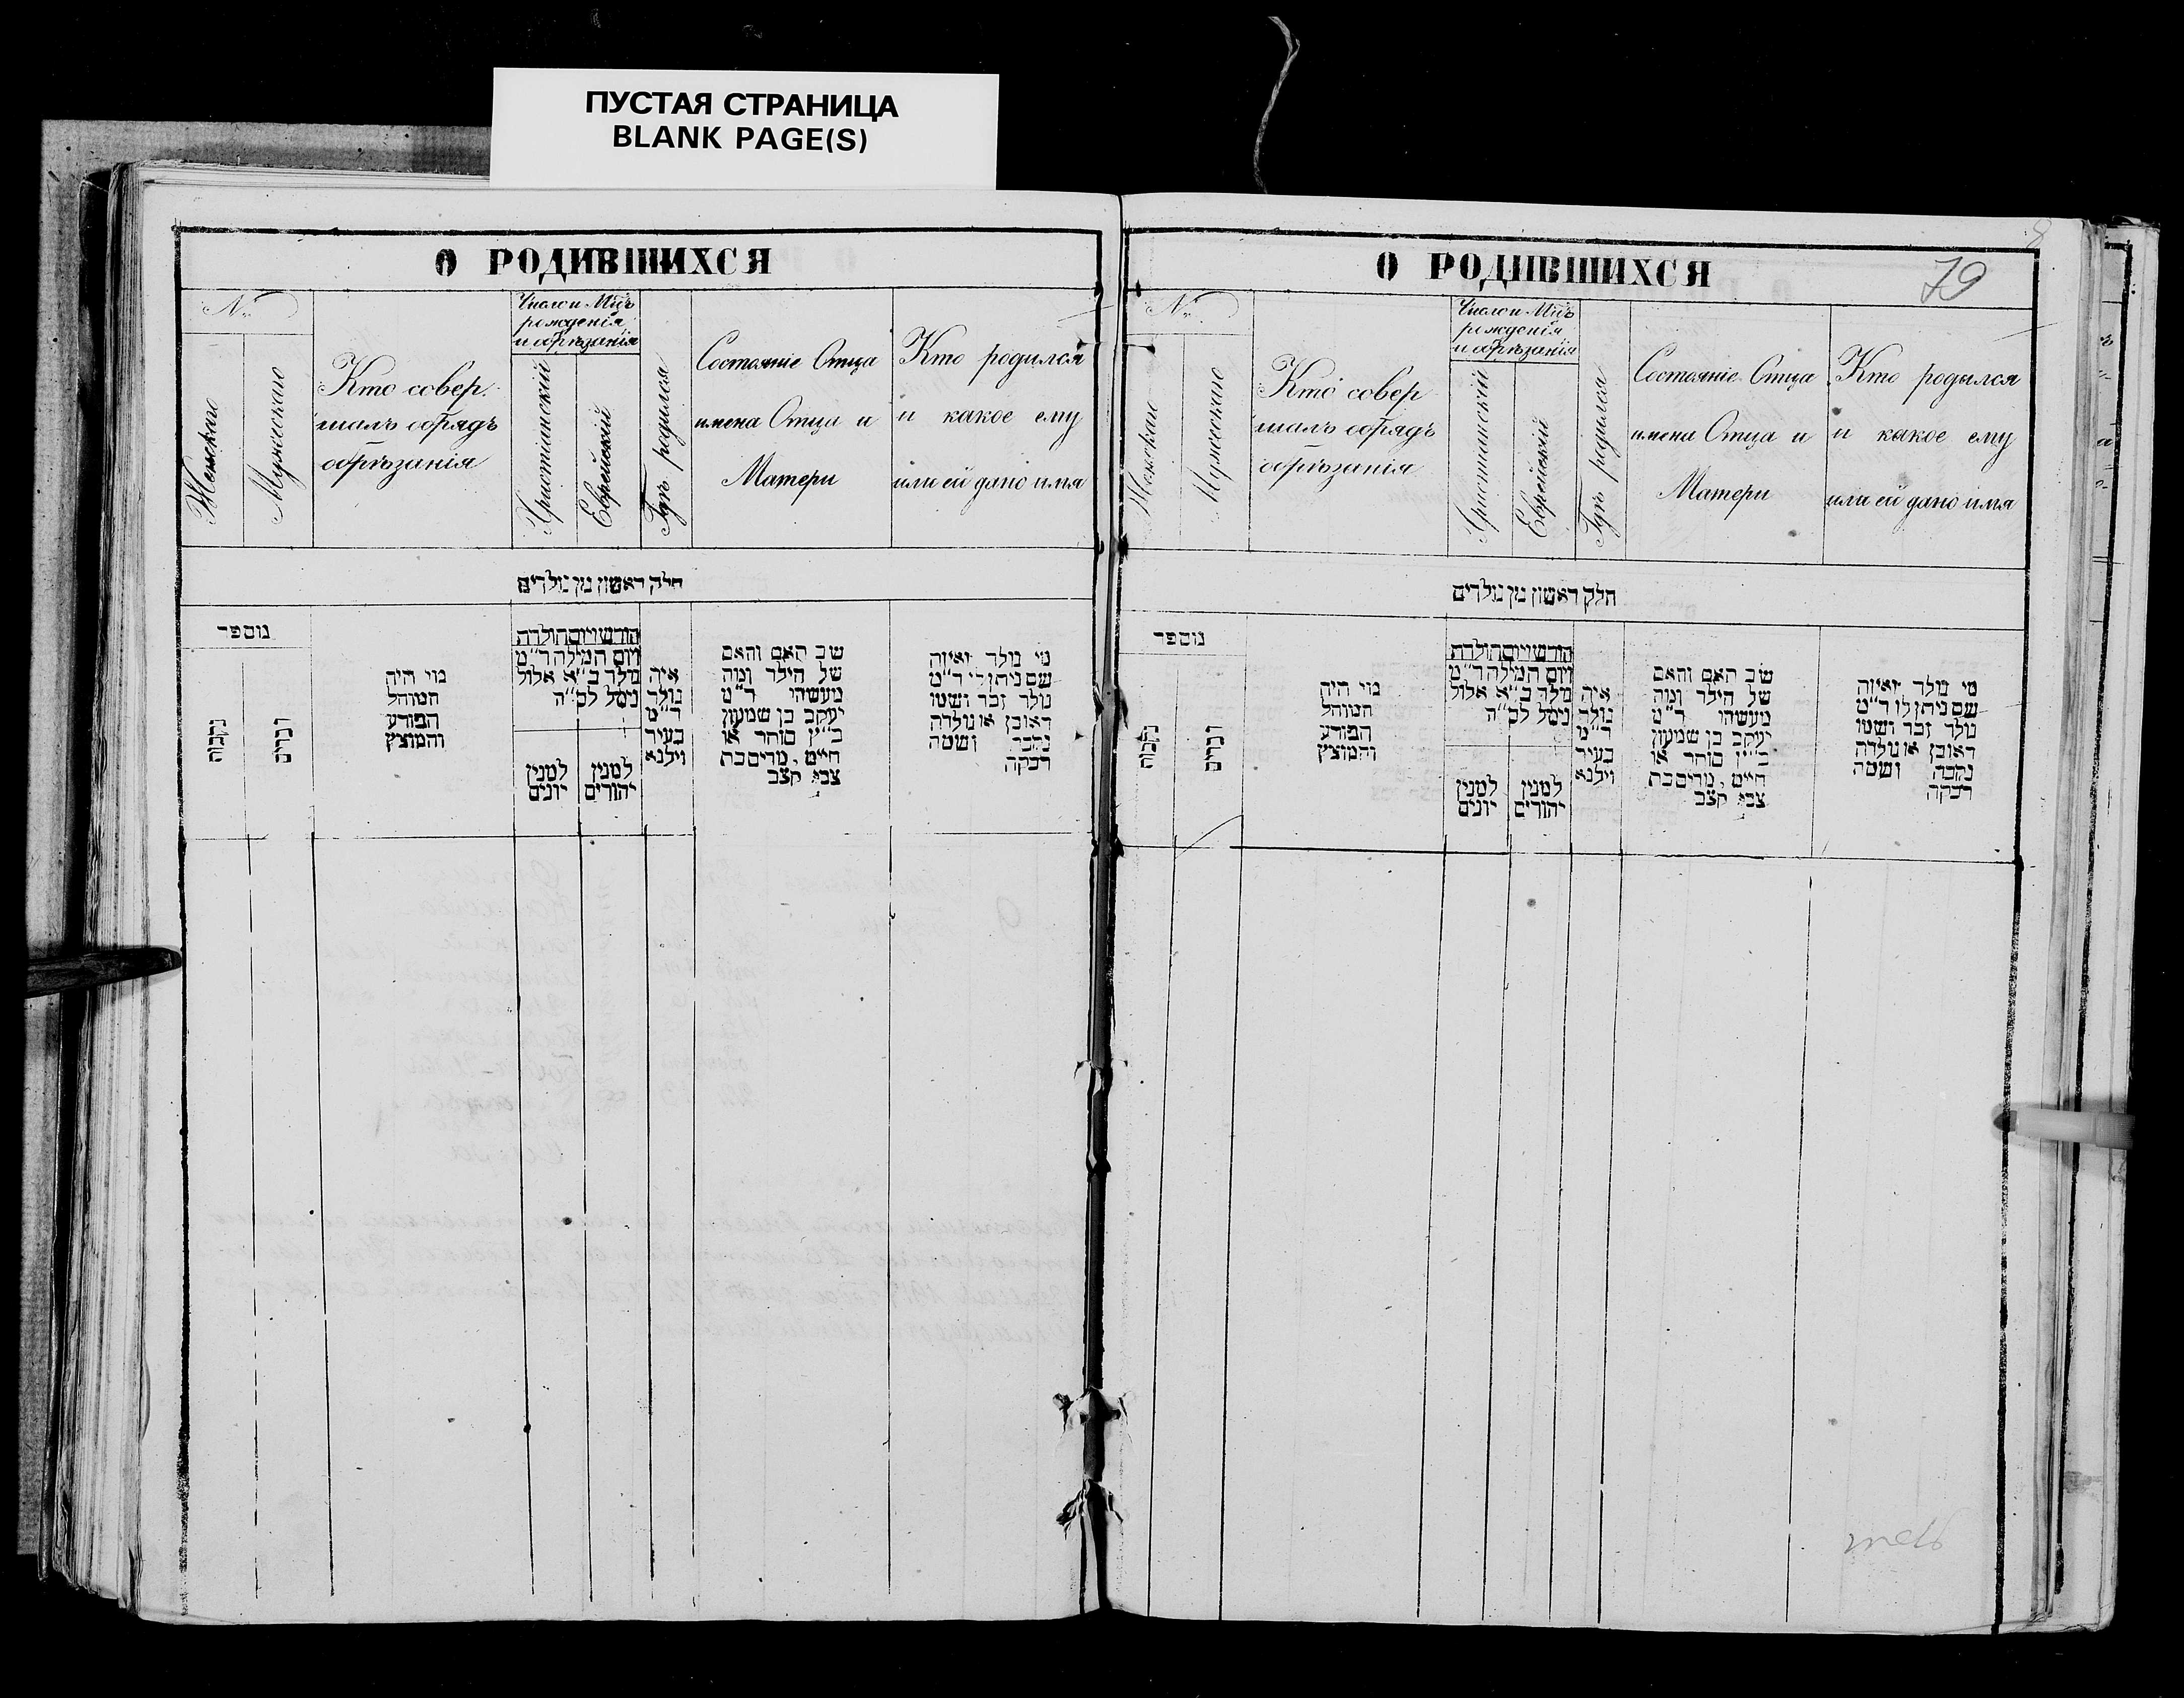 ПУСТАЯ СТРАНИЦА
BLANK PAGE(S)
О РОДИВШИХСЯ
№
Женскаго
Мужескаго
Кто совер-
шалъ обрядъ
обрѣзанія
Число и Мцъ
рожденія
и обрѣзанія
Христіанскій
Еврейскій
Гдѣ родился
Состояніе Отца
имена Отца и
Матери
Кто родился
и какое ему
или ей дано имя
חלק ראשון מן נולדים
מוספר
נקבות
זכרים
מוי היה
המוהל
הפורע
והמוצץ
חודש ויום הולדת
ויום המילה ד״מ
נולד ב״א אלול
נימל לס״ה
למנין
יונים
למנין
יהודים
איה
נולד
ד״מ
בעיר
וילנא
שב האם והאם
של הילד ומה
מעשהו ד״מ
יעקב בן שמעון
כ״ץ סוחר או
חייט, מרים בת
צבי קצב
מי נולד ואיזה
שם ניתן לו ד״מ
נולד זכר ושמו
ראובן או נולדה
נקבה ושמה
רבקה
О РОДИВШИХСЯ
79
№
Женскаго
Мужескаго
Кто совер-
шалъ обрядъ
обрѣзанія
Число и Мцъ
рожденія
и обрѣзанія
Христіанскій
Еврейскій
Гдѣ родился
Состояніе Отца
имена Отца и
Матери
Кто родился
и какое ему
или ей дано имя
חלק ראשון מן נולדים
מוספר
נקבות
זכרים
מוי היה
המוהל
הפורע
והמוצץ
חודש ויום הולדת
ויום המילה ד״מ
נולד ב״א אלול
נימל לס״ה
למנין
יונים
למנין
יהודים
איה
נולד
ד״מ
בעיר
וילנא
שב האם והאם
של הילד ומה
מעשהו ד״מ
יעקב בן שמעון
כ״ץ סוחר או
חייט, מרים בת
צבי קצב
מי נולד ואיזה
שם ניתן לו ד״מ
נולד זכר ושמו
ראובן או נולדה
נקבה ושמה
רבקה